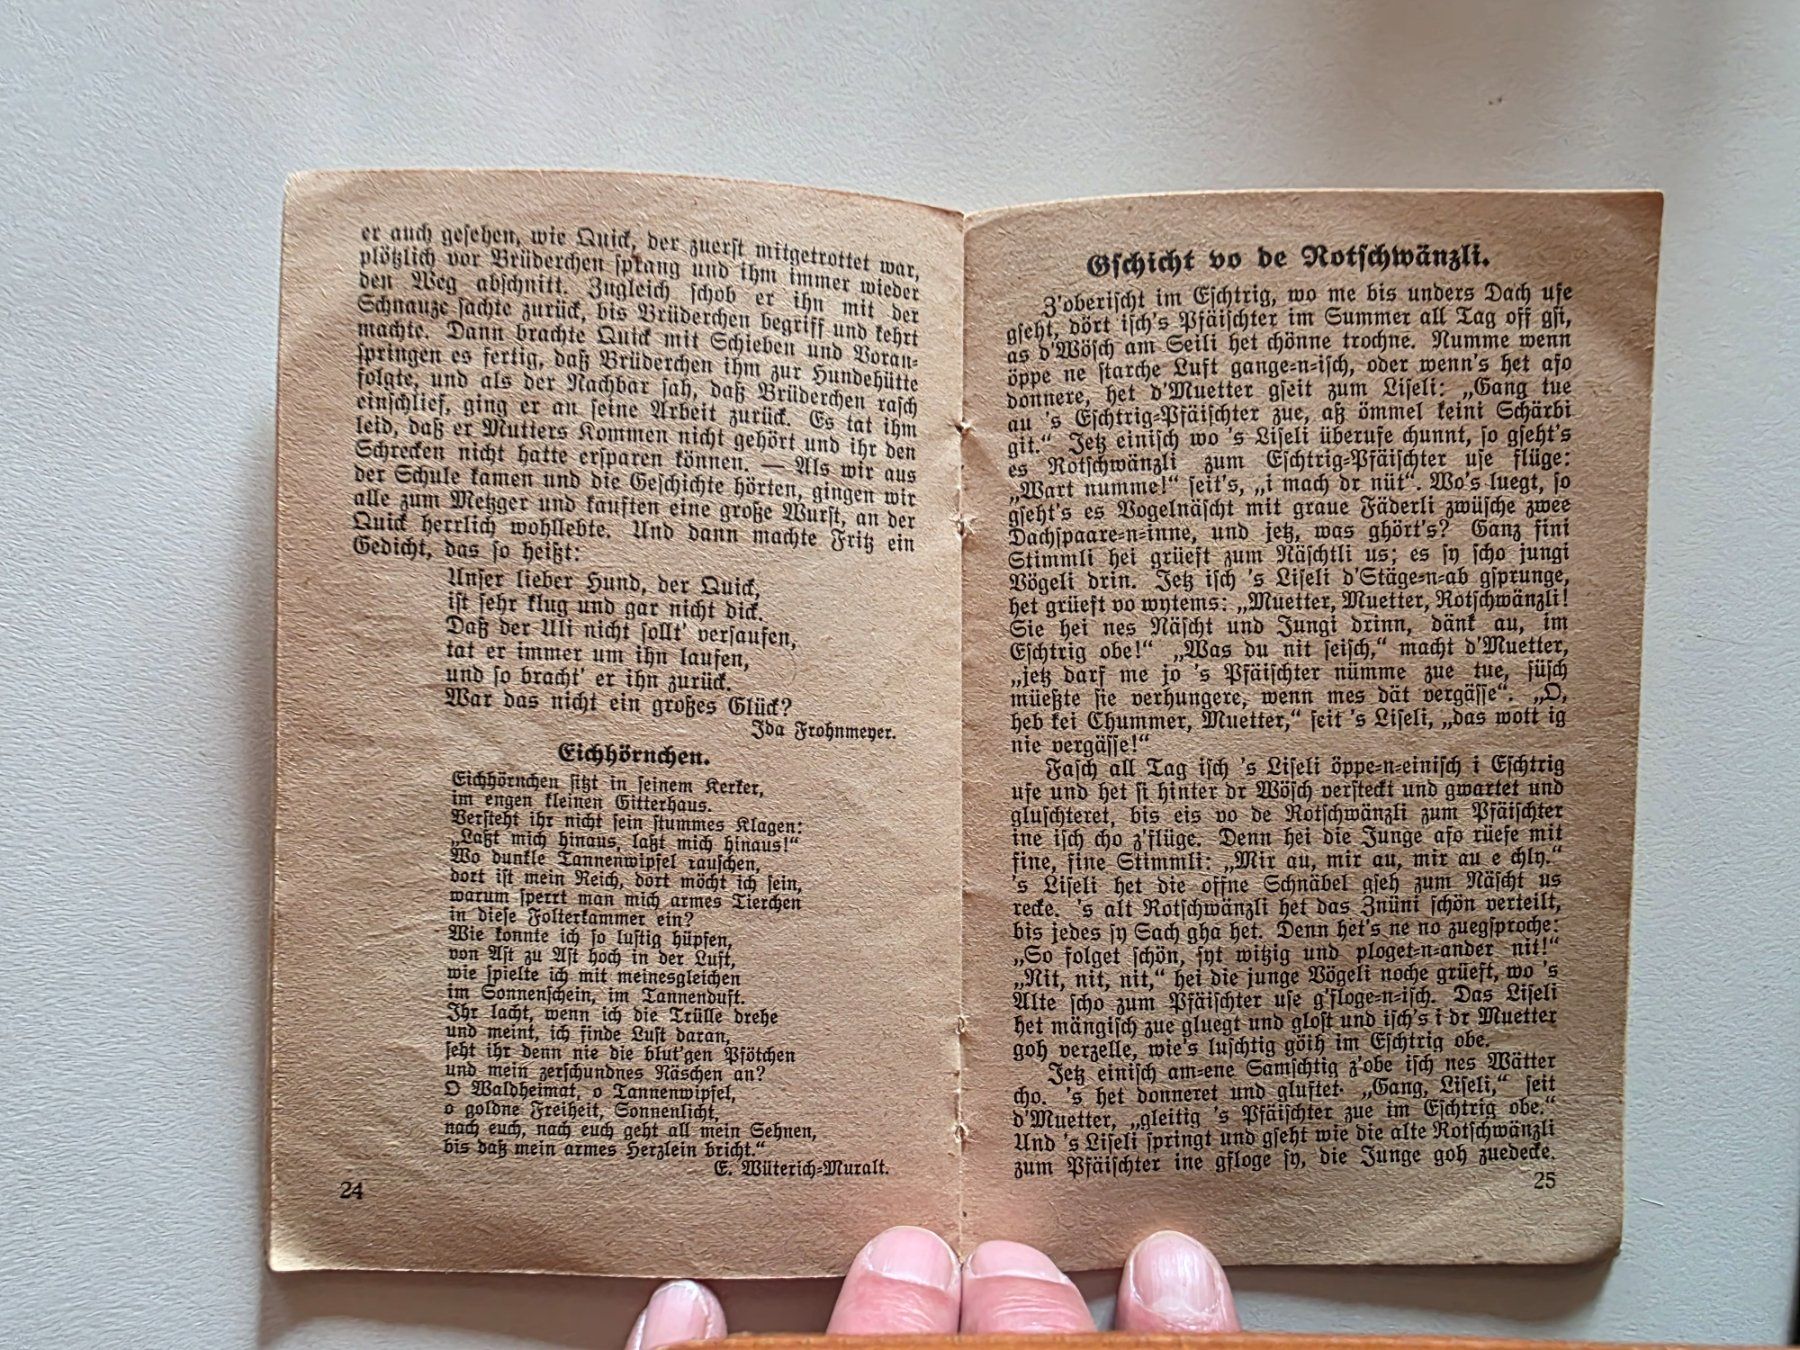 er auch gesehen, wie Quick, der zuerst mitgetrottet war,
plötzlich vor Brüderchen sprang und ihm immer wieder
den Weg abschnitt. Zugleich schob er ihn mit der
Schnauze sachte zurück, bis Brüderchen begriff und kehrt
machte. Dann brachte Quick mit Schieben und Voran-
springen es fertig, daß Brüderchen ihm zur Hundehütte
folgte, und als der Nachbar sah, daß Brüderchen rasch
einschlief, ging er an seine Arbeit zurück. Es tat ihm
leid, daß er Mutters Kommen nicht gehört und ihr den
Schrecken nicht hatte ersparen können. — Als wir aus
der Schule kamen und die Geschichte hörten, gingen wir
alle zum Metzger und kauften eine große Wurst, an der
Quick herrlich wohllebte. Und dann machte Fritz ein
Gedicht, das so heißt:
Unser lieber Hund, der Quick,
ist sehr klug und gar nicht dick.
Daß der Uli nicht sollt' versaufen,
tat er immer um ihn laufen,
und so bracht' er ihn zurück.
War das nicht ein großes Glück?
Ida Frohnmeyer.
Eichhörnchen.
Eichhörnchen sitzt in seinem Kerker,
im engen kleinen Gitterhaus.
Versteht ihr nicht sein stummes Klagen:
„Laßt mich hinaus, laßt mich hinaus!“
Wo dunkle Tannenwipfel rauschen,
dort ist mein Reich, dort möcht ich sein,
warum sperrt man mich armes Tierchen
in diese Folterkammer ein?
Wie konnte ich so lustig hüpfen,
von Ast zu Ast hoch in der Luft,
wie spielte ich mit meinesgleichen
im Sonnenschein, im Tannenduft.
Ihr lacht, wenn ich die Trülle drehe
und meint, ich finde Lust daran,
seht ihr denn nie die blut'gen Pfötchen
und mein zerschundnes Näschen an?
O Waldheimat, o Tannenwipfel,
o goldne Freiheit, Sonnenlicht,
nach euch, nach euch geht all mein Sehnen,
bis daß mein armes Herzlein bricht.“
E. Wüterich-Muralt.
24
Gschicht vo de Rotschwänzli.
Z'oberischt im Eschtrig, wo me bis unders Dach use
gseht, dört isch's Pfäischter im Summer all Tag off gsi,
as d'Wösch am Seili het chönne trochne. Numme wenn
öppe ne starche Luft gange-n-isch, oder wenn's het afo
donnere, het d'Muetter gseit zum Liseli: „Gang tue
au 's Eschtrig-Pfäischter zue, aß ömmel keini Schärbi
git.“ Jetz einisch wo 's Liseli überufe chunnt, so gseht's
es Rotschwänzli zum Eschtrig-Pfäischter use flüge:
„Wart numme!“ seit's, „i mach dr nüt“. Wo's luegt, so
gseht's es Vogelnäscht mit graue Fäderli zwüsche zwee
Dachspaare-n-inne, und jetz, was ghört's? Ganz fini
Stimmli hei grüeft zum Näschtli us; es sy scho jungi
Vögeli drin. Jetz isch 's Liseli d'Stäge-n-ab gsprunge,
het grüeft vo wytems: „Muetter, Muetter, Rotschwänzli!
Sie hei nes Näscht und Jungi drinn, dänk au, im
Eschtrig obe!“ „Was du nit seisch,“ macht d'Muetter,
„jetz darf me jo 's Pfäischter nümme zue tue, süsch
müeßte sie verhungere, wenn mes dät vergässe“. „O,
heb kei Chummer, Muetter,“ seit 's Liseli, „das wott ig
nie vergässe!“
Fasch all Tag isch 's Liseli öppe-n-einisch i Eschtrig
ufe und het si hinter dr Wösch versteckt und gwartet und
gluschteret, bis eis vo de Rotschwänzli zum Pfäischter
ine isch cho z'flüge. Denn hei die Junge afo rüefe mit
fine, fine Stimmli: „Mir au, mir au, mir au e chly.“
's Liseli het die offne Schnäbel gseh zum Näscht us
recke. 's alt Rotschwänzli het das Znüni schön verteilt,
bis jedes sy Sach gha het. Denn het's ne no zuegsproche:
„So folget schön, syt witzig und ploget-n-ander nit!“
„Nit, nit, nit,“ hei die junge Vögeli noche grüeft, wo 's
Alte scho zum Pfäischter use g'floge-n-isch. Das Liseli
het mängisch zue gluegt und glost und isch's i dr Muetter
goh verzelle, wie's luschtig göih im Eschtrig obe.
Jetz einisch am-ene Samschtig z'obe isch nes Wätter
cho. 's het donneret und gluftet. „Gang, Liseli,“ seit
d'Muetter, „gleitig 's Pfäischter zue im Eschtrig obe.“
Und 's Liseli springt und gseht wie die alte Rotschwänzli
zum Pfäischter ine gfloge sy, die Junge goh zuedecke.
25